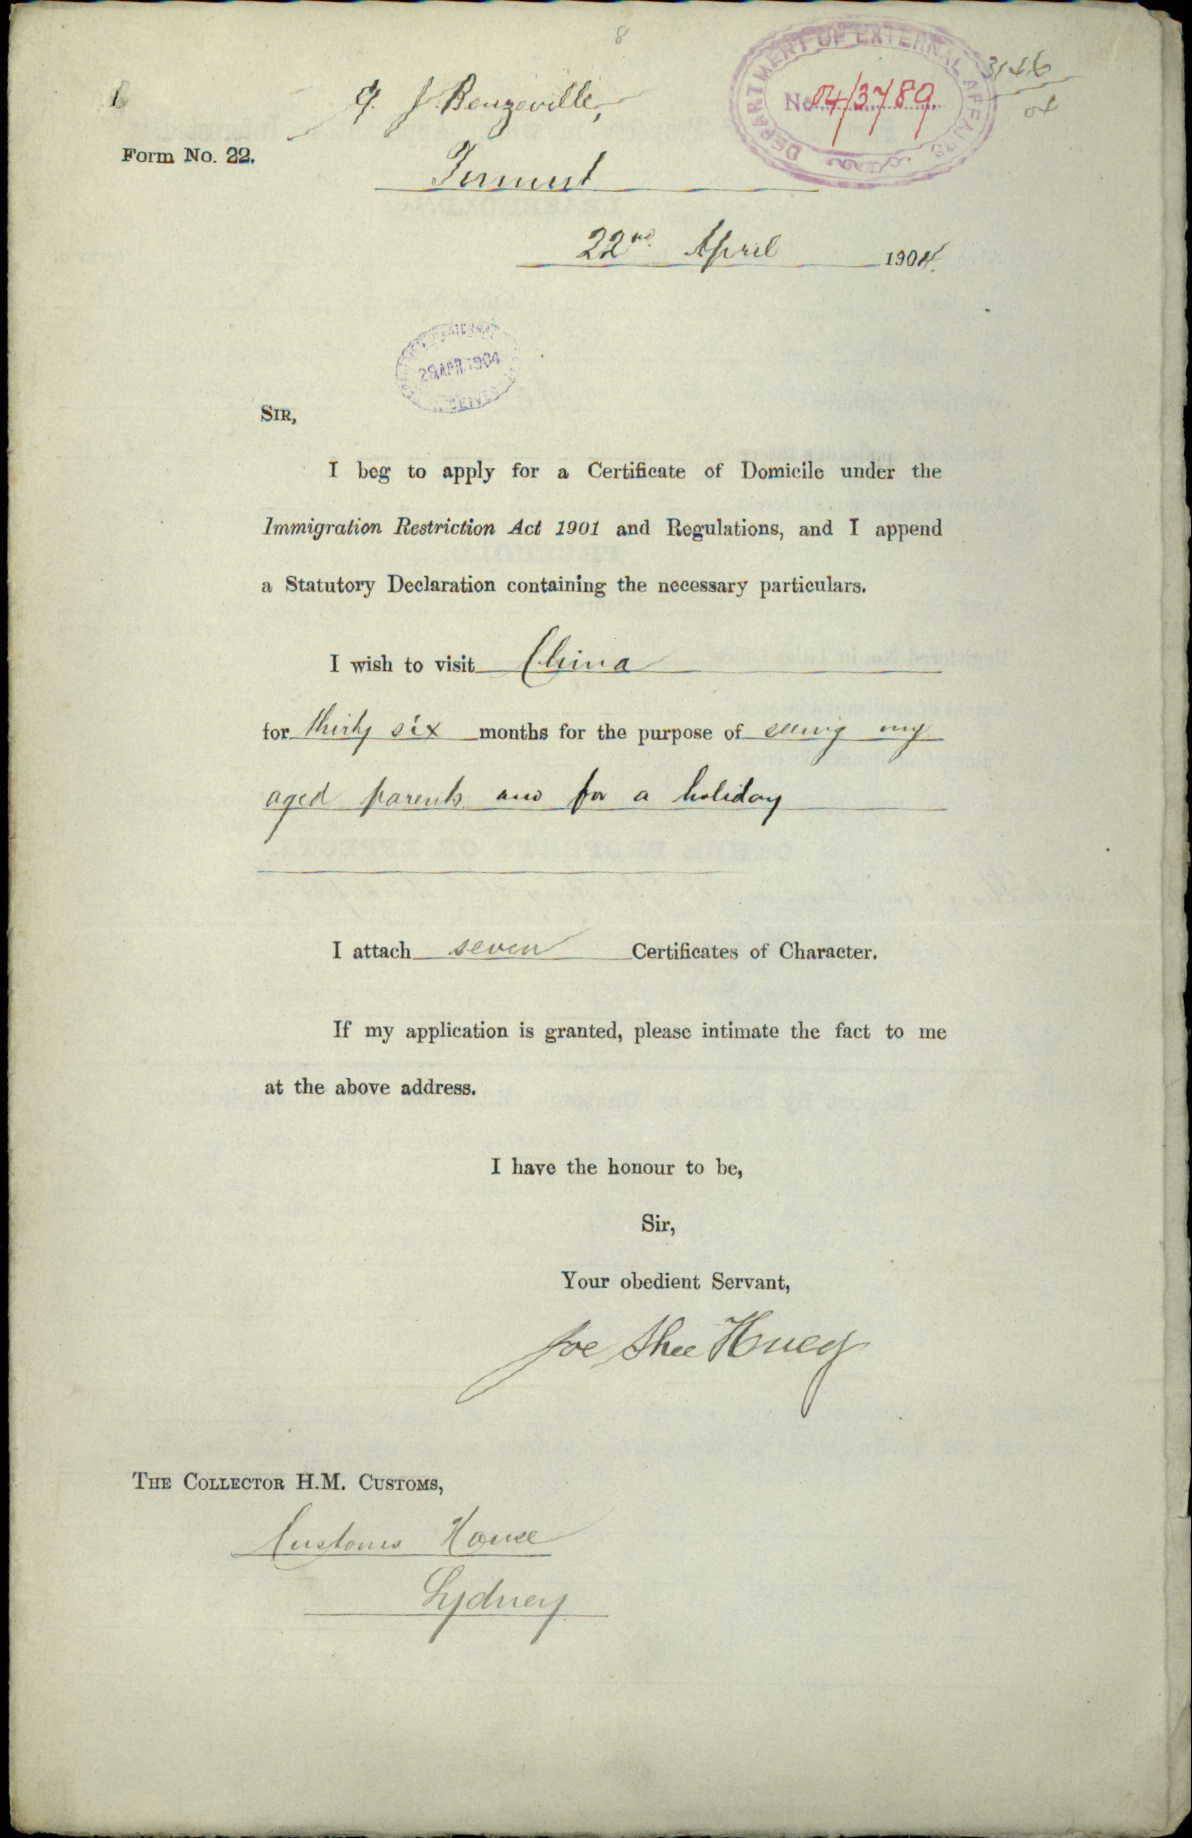 8
DEPARTMENT OF EXTERNAL AFFAIRS
No 04/3789
3146
04
J. Benzeville,
Form No. 22.
Tumut
22nd April 1904.
28 APR 1904
SIR,
I beg to apply for a Certificate of Domicile under the
Immigration Restriction Act 1901 and Regulations, and I append
a Statutory Declaration containing the necessary particulars.
I wish to visit China
for thirty six months for the purpose of seeing my
aged parents and for a holiday
I attach seven Certificates of Character.
If my application is granted, please intimate the fact to me
at the above address.
I have the honour to be,
Sir,
Your obedient Servant,
Joe Shee Hueg
THE COLLECTOR H.M. CUSTOMS,
Customs House
Sydney